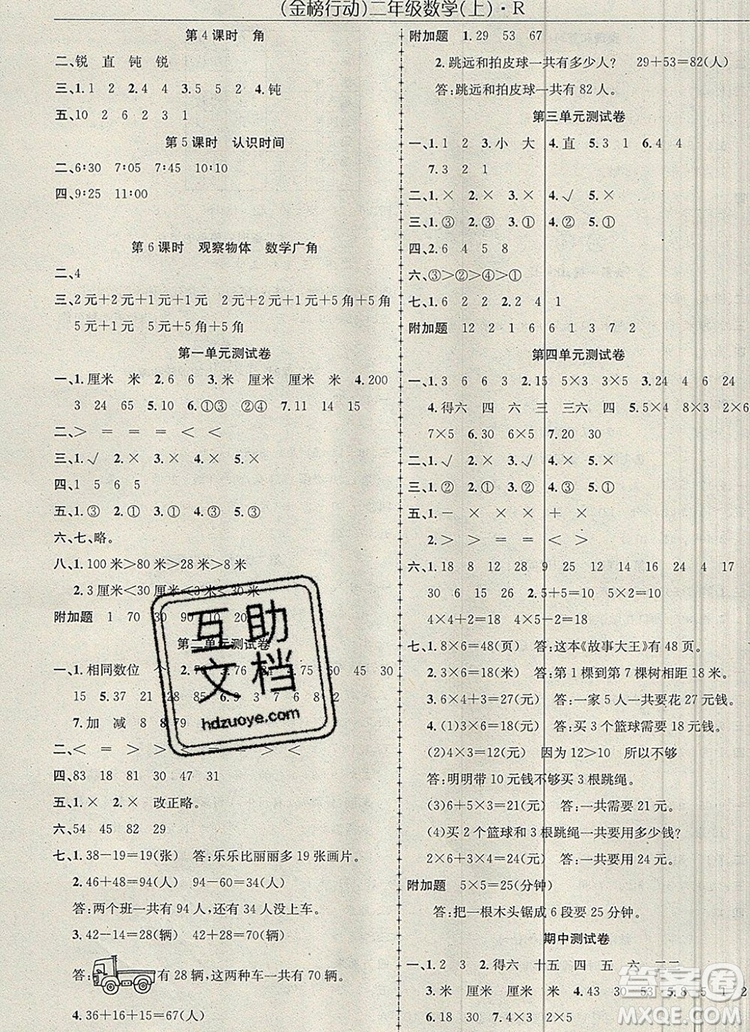 (金榜行动)二年级数学(上)·R
第4课时 角
二、锐 直 钝 锐
三、1.1 2 2.4 3.5 4.2 5.钝
五、10 2 6 2 3 1
第5课时 认识时间
二、6:30 7:05 7:45 10:20
四、9:25 11:00
第6课时 观察物体 数学广角
二、4
三、2元+2元+1元 2元+2元+5角+5角
5元+1元 5元+5角+5角
第一单元测试卷
一、1.厘米 米 2.6 6 3.厘米 米 4.200
3 24 65 5.10 6.①③ ②④ 7.11 14 15
二、> = = = < <
三、1.√ 2.× 3.× 4.× 5.×
四、1 5 6 5
五、1.③ 2.① 3.① 4.① 5.③
六、七、略。
八、1.100米>80米>28米>8米
2.3厘米<30厘米<3米<30米
附加题 1 70 30 90 10 20
第二单元测试卷
一、1.相同数位 个 45 30
15 5.37 6.
7.× 加 减 8 8
二、< = > < > <
四、83 18 81 30 47 31
五、1.× 2.× 改正略。
六、54 45 82 29
七、1.38-19=19(张) 答:乐乐比丽丽多19张画片。
2.46+48=94(人) 94-90=4(人)
答:两个班一共有94人,还有4人没有座位。
3.42-14=28(辆) 42+28=70(辆)
答: 有28辆,这两种车一共有70辆。
4.36+16+18=70(元)
附加题 1.29 53 67
2.跳远和拍皮球一共有多少人? 29+53=82(人)
答:跳远和拍皮球一共有82人。
第三单元测试卷
一、1.1 2 2.1 3.小 大 4.直 5.3 1 6.4 4
7.3 2 1
二、1.× 2.× 3.× 4.√ 5.×
三、1.③ 2.① 3.② 4.① 5.①
四、2.6 4 5 8
六、③>①>②>④>⑤
七、1.2 6 1 2.3 2 1
附加题 12 2 1 6 6 1 3 7 2
第四单元测试卷
一、1.3 6 6 3 2.15 5×3 3×5 3.16 24
4.得六 四 六 三三 三六 5.4×5 8×3
7×5 6.30 5×6 7.20 30
二、1.× 2.√ 3.× 4.√ 5.×
四、1.③ 2.① 3.② 4.③ 5.②
五、1.- × × × + ×
2.> = > < > <
六、1.12 25 6 15 18 24 9 4 18
30 6 15 30 8 10
2.4×4+2=18 4×5-2=18
七、1.6×8=48(页) 答:这本《故事大王》有48页。
2.3×6=18(米) 答:第1棵到第7棵树相距18米。
3.4×6+3=27(元) 答:一家5人一共要花27元钱。
4.(1)3×6=18(元) 答:买3个篮球要用18元钱。
(2)4×3=12(元) 12>10 所以不够
答:明明带10元钱不够买3个跳绳。
(3)6+5×3=21(元) 答:一共需要21元。
(4)买2个篮球和3根跳绳一共要用多少钱?
2×6+3×4=24(元) 答:一共要用24元。
附加题 5×5=25(分钟)
答:把一根木头锯成6段要花25分钟。
期中测试卷
一、1.2 3 2.得六 十五 四 五 六 二二
3.厘米 米 厘米 米 4.43 30 53 5.
互助
文档
hdzuoye.com
答案圈
MXQE.COM